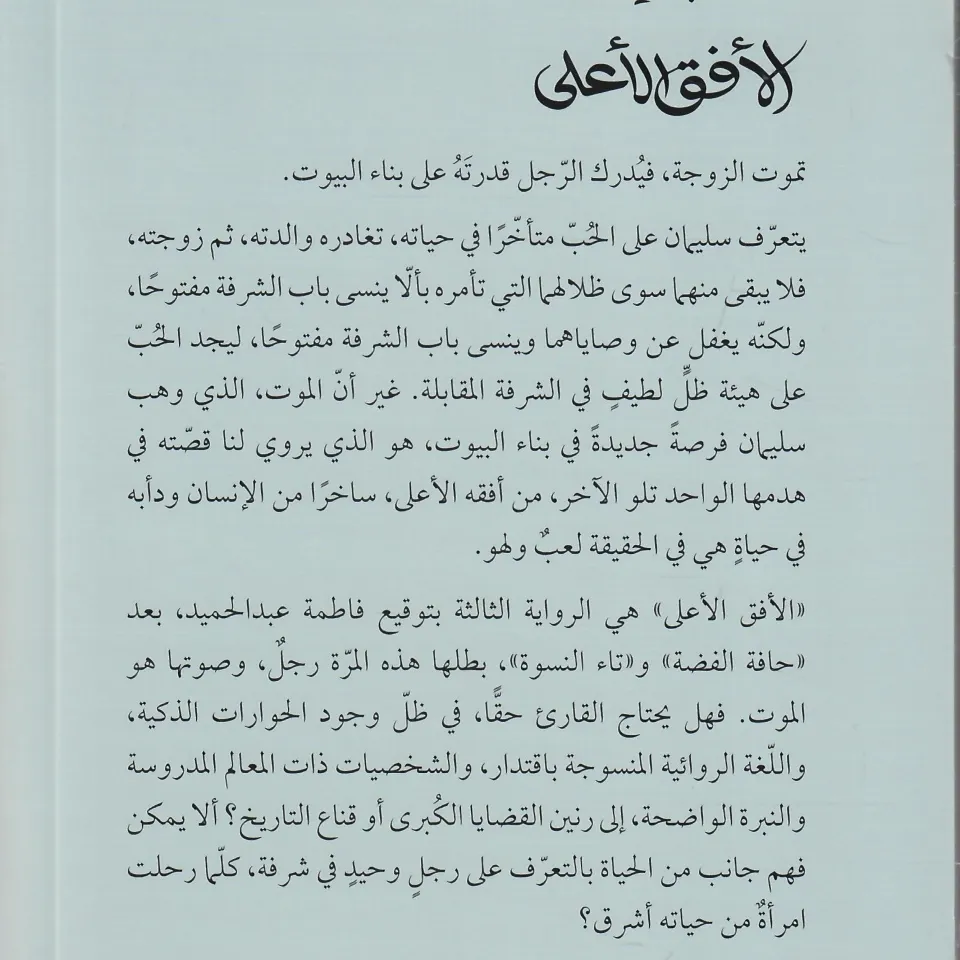 الأفق الأعلى
تموت الزوجة، فيُدرك الرّجل قدرتَهُ على بناء البيوت.
يتعرّف سليمان على الحُبّ متأخّرًا في حياته، تغادره والدته، ثم زوجته،
فلا يبقى منهما سوى ظلالهما التي تأمره بألّا ينسى باب الشرفة مفتوحًا،
ولكنّه يغفل عن وصاياهما وينسى باب الشرفة مفتوحًا، ليجد الحُبّ
على هيئة ظلٍّ لطيفٍ في الشرفة المقابلة. غير أنّ الموت، الذي وهب
سليمان فرصةً جديدةً في بناء البيوت، هو الذي يروي لنا قصّته في
هدمها الواحد تلو الآخر، من أفقه الأعلى، ساخرًا من الإنسان ودأبه
في حياةٍ هي في الحقيقة لعبٌ ولهو.
«الأفق الأعلى» هي الرواية الثالثة بتوقيع فاطمة عبدالحميد، بعد
«حافة الفضة» و«تاء النسوة»، بطلها هذه المرّة رجلٌ، وصوتها هو
الموت. فهل يحتاج القارئ حقًّا، في ظلّ وجود الحوارات الذكية،
واللّغة الروائية المنسوجة باقتدار، والشخصيات ذات المعالم المدروسة
والنبرة الواضحة، إلى رنين القضايا الكُبرى أو قناع التاريخ؟ ألا يمكن
فهم جانب من الحياة بالتعرّف على رجلٍ وحيدٍ في شرفة، كلّما رحلت
امرأةٌ من حياته أشرق؟